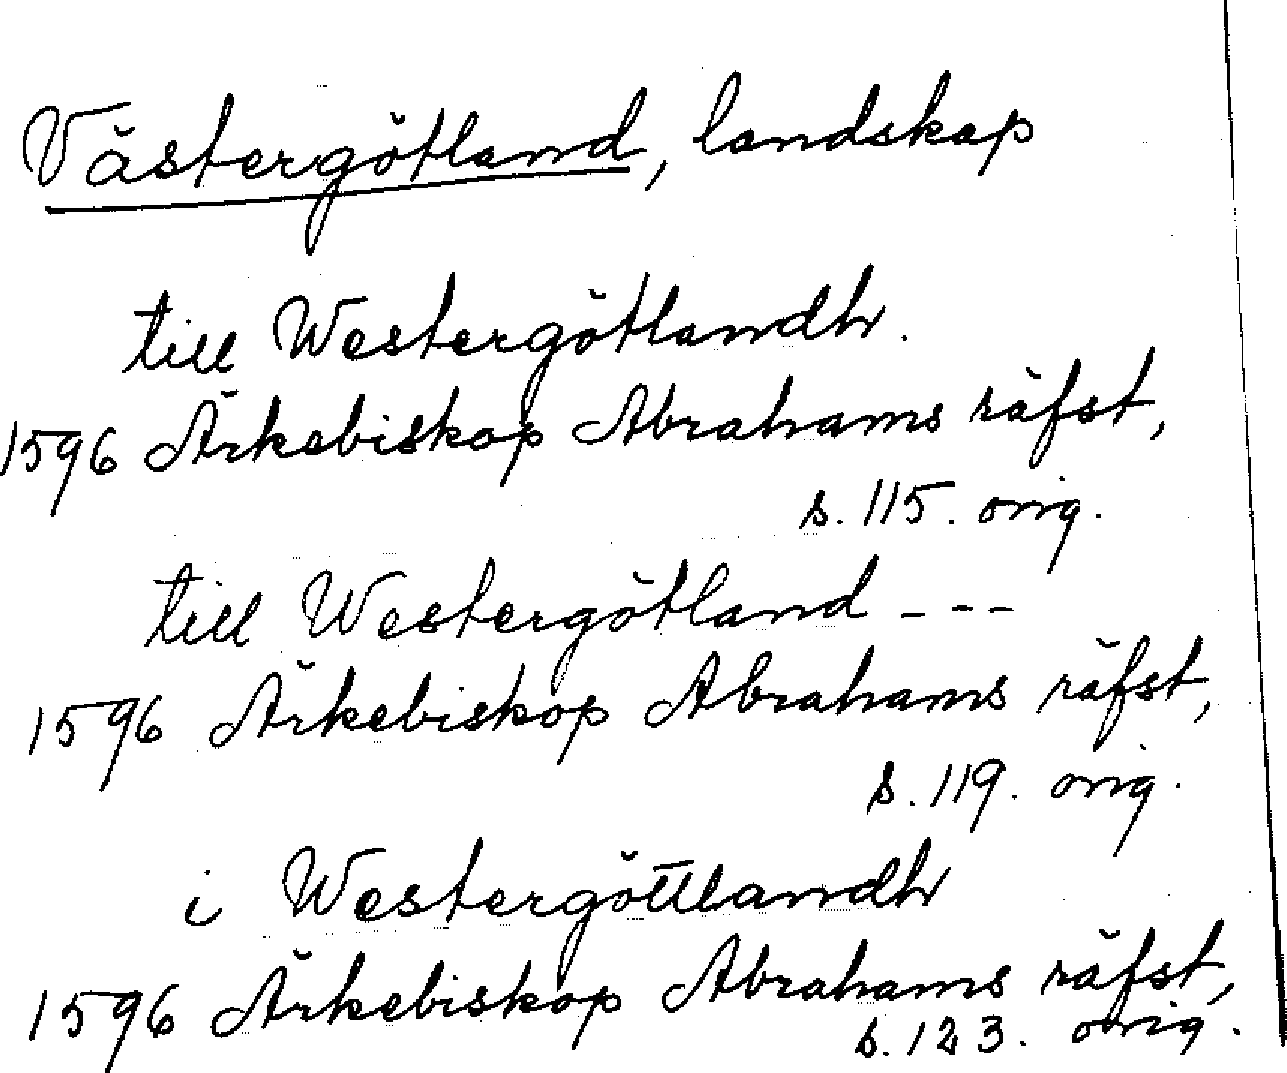 Västergötland, landskap
till Westergötlandh.
1596 Ärkebiskop Abrahams räfst,
s. 115. orig.
till Westergötland ---
1596 Ärkebiskop Abrahams räfst,
s. 119. orig.
i Westergöttlandh
1596 Ärkebiskop Abrahams räfst,
s. 123. orig.